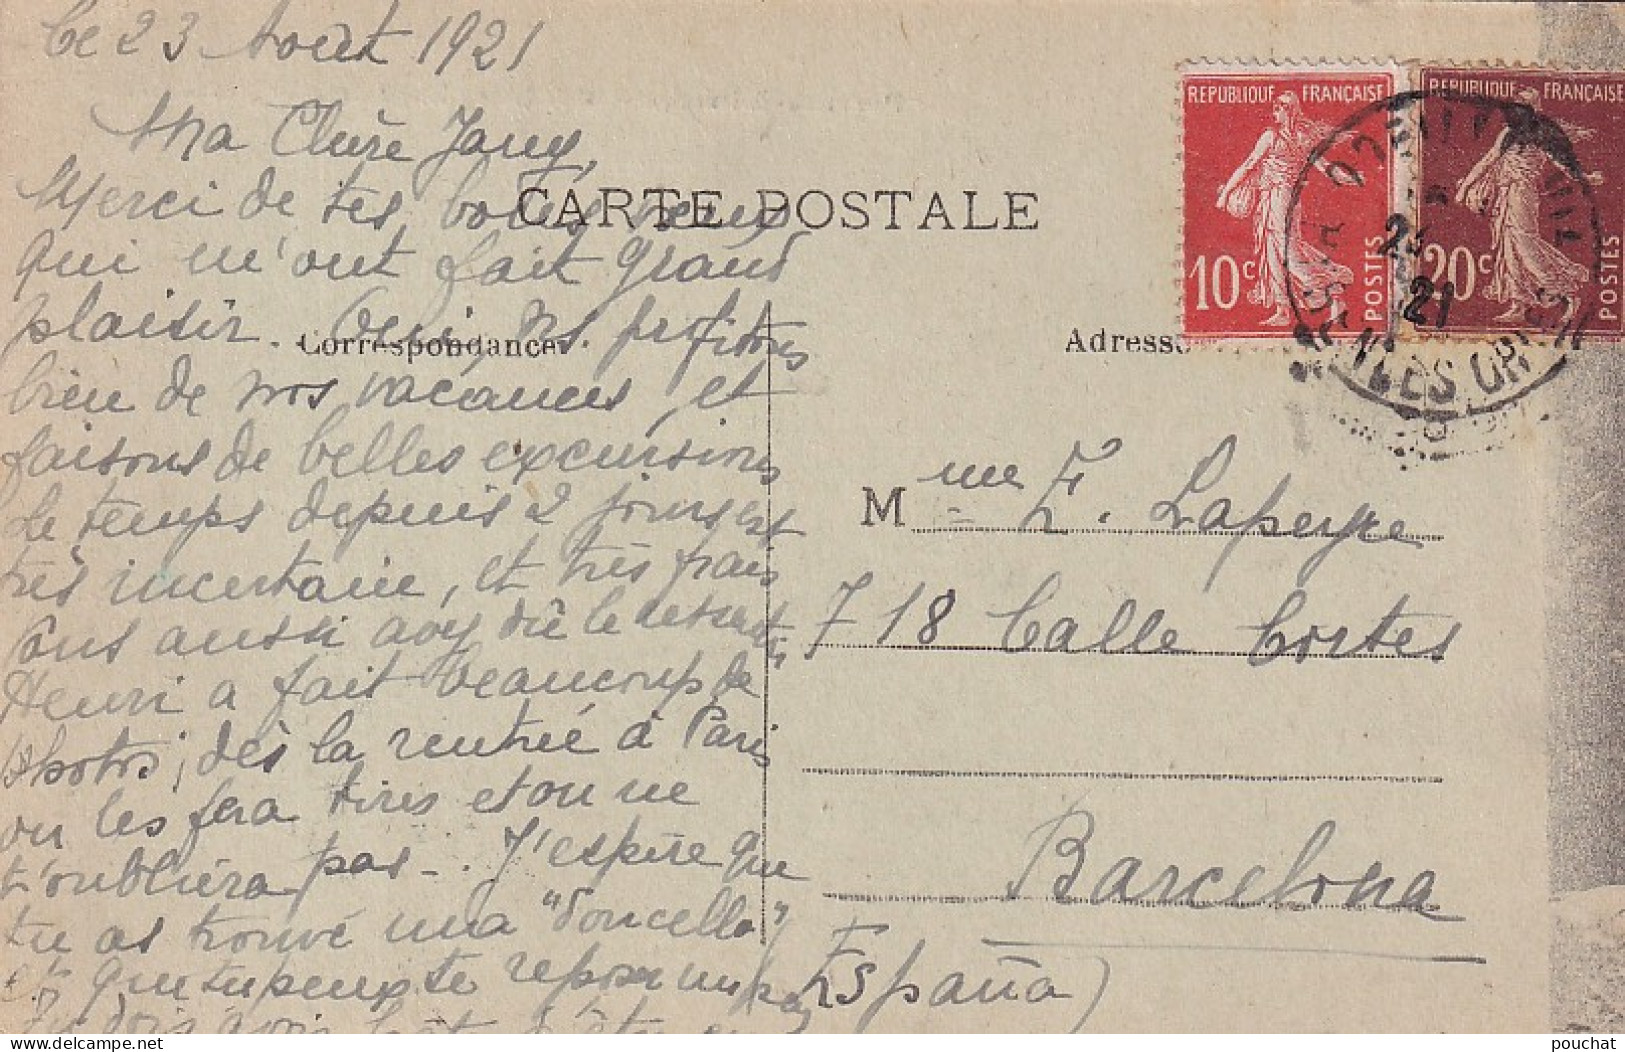 Le 23 Août 1921
Ma Chère Jany,
Merci de tes bonnes
qui m'ont fait grand
plaisir. ns. profitons
bien de nos vacances et
faisons de belles excursions
Le temps depuis 2 jours est
très incertaine, et très frais
Vous aussi avez dû le
Henri a fait beaucoup de
photos, dès la rentrée à Paris
on les fera tirer et on ne
t'oubliera pas. J'espère que
tu as trouvé una "doncella"
et que tu peux te reposer un peu
Tu dois avoir à
CARTE POSTALE
Correspondance
Adresse
REPUBLIQUE FRANÇAISE
10c
POSTES
REPUBLIQUE FRANÇAISE
20c
POSTES
21
Mme Lapeyre
718 Calle Cortes
Barcelona
España)
pouchat